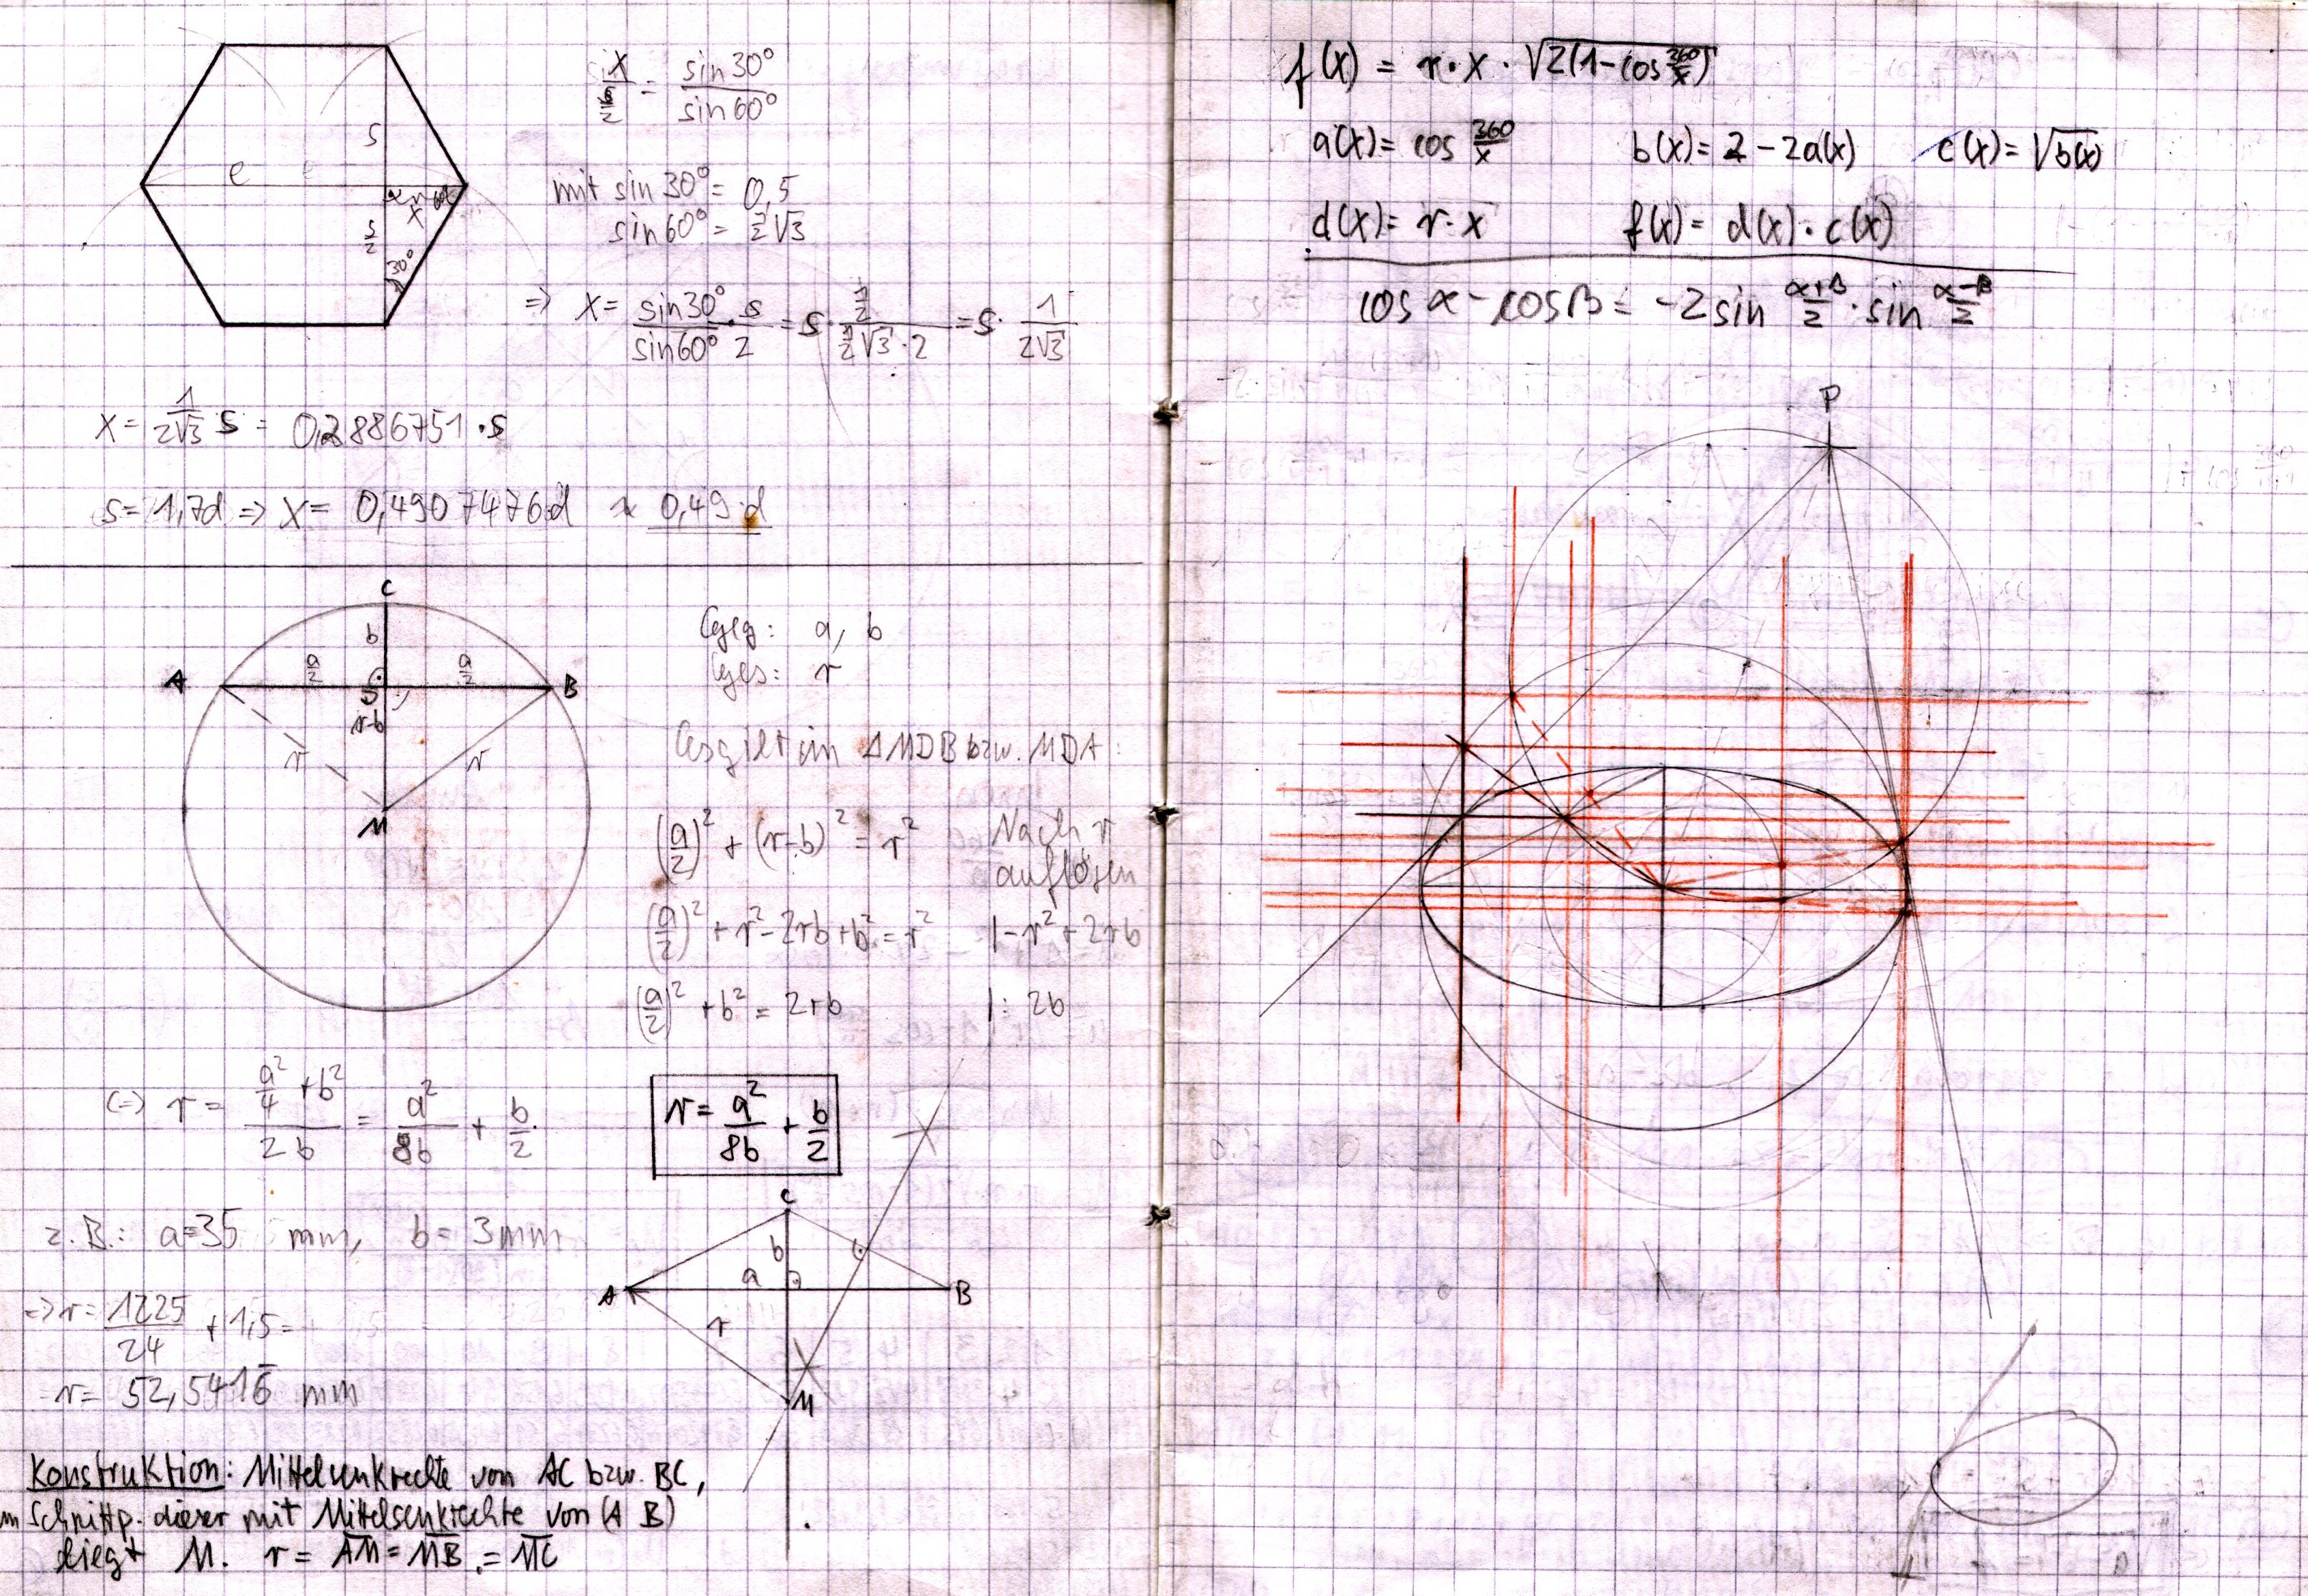 s
e
x
s/2
30°
x/(s/2) = sin30°/sin60°
mit sin 30° = 0,5
sin 60° = 1/2 √3
=> x = sin30°/sin60° · s/2 = s · (1/2)/(1/2 √3 · 2) = s · 1/(2√3)
x = 1/(2√3) s = 0,2886751 · s
s = 1,7d => x = 0,4907476d ≈ 0,49·d
C
b
A a/2 a/2 B
r-b
r r
M
Geg: a, b
Ges: r
Es gilt in ΔMDB bzw. MDA:
(a/2)² + (r-b)² = r² Nach r
auflösen
(a/2)² + r² - 2rb + b² = r² | -r² + 2rb
(a/2)² + b² = 2rb | : 2b
(=) r = (a²/4 + b²)/(2b) = a²/(8b) + b/2
r = a²/(8b) + b/2
z.B.: a=35 mm, b = 3mm
=> r = 1225/24 + 1,5 =
r = 52,5416̅ mm
C
b
a
A B
r
M
Konstruktion: Mittelsenkrechte von AC bzw. BC,
im Schnittp. dieser mit Mittelsenkrechte von (A B)
liegt M. r = A̅M̅ = M̅B̅ = M̅C̅
f(x) = r·x·√(2(1-cos 360/x))
a(x) = cos 360/x b(x) = 2 - 2a(x) c(x) = √b(x)
d(x) = r·x f(x) = d(x)·c(x)
cos α - cos β = -2 sin (α+β)/2 · sin (α-β)/2
P